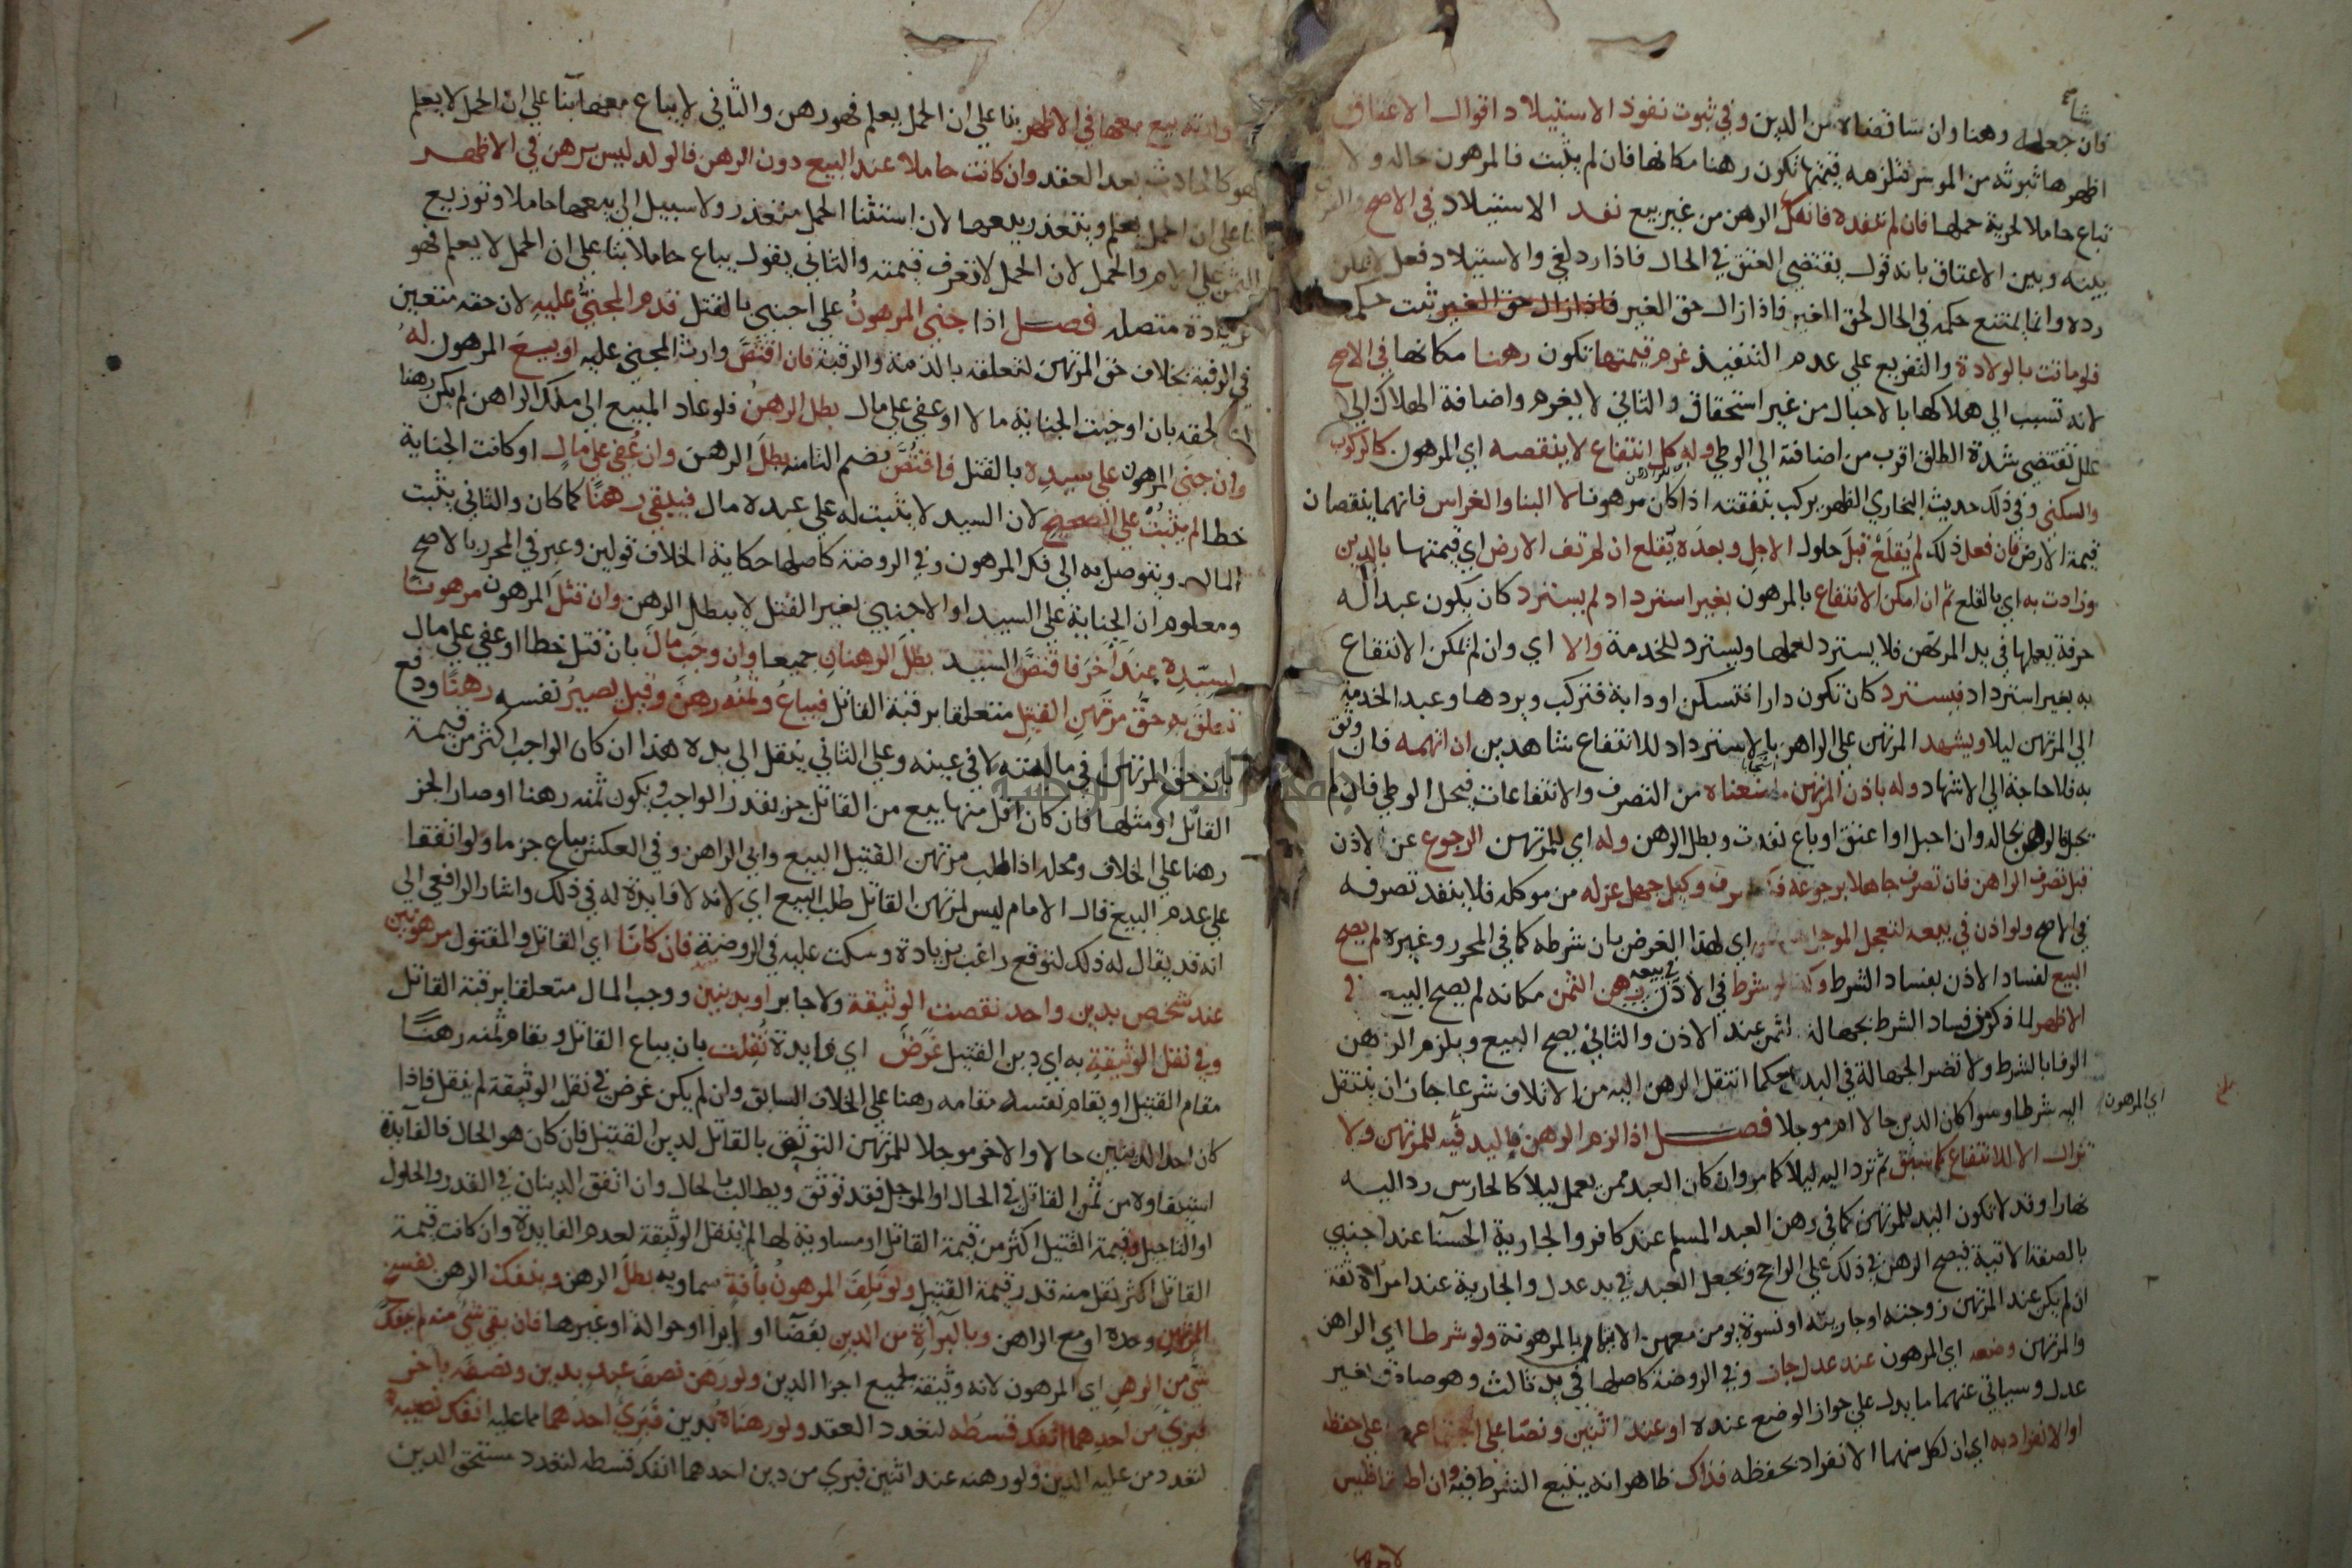 فان شا جعله رهنا وان شا قضاه من الدين وفي ثبوت نفوذ الاستيلاد اقوال الاعتاق
اظهرها ثبوته من الموسر فتلزمه قيمتها تكون رهنا مكانها فان لم يثبت فالمرهون بحاله ولا
تباع حاملا لحرية حملها فان لم ننفذه فانفك الرهن من غير بيع نفد الاستيلاد في الاصح
بينه وبين الاعتاق بانه قول يقتضي العتق في الحال فاذا رد لغى والاستيلاد فعل لا يمكن
رده وانما يمتنع حكمه في الحال لحق الغير فاذا زال حق الغير ثبت حكمه
فلو ماتت بالولادة والتفريع على عدم التنفيذ غرم قيمتها تكون رهنا مكانها في الاصح
لانه تسبب الى هلاكها بالاحبال من غير استحقاق والثاني لا يغرم واضافة الهلاك الى
علل تقتضي شدة الطلق اقرب من اضافته الى الوطي وله كل انتفاع لا ينقصه اي المرهون كالركوب
والسكنى وفي ذلك حديث البخاري الظهر يركب بنفقته اذا كان مرهونا لا البنا والغراس فانهما ينقصان
قيمة الارض فان فعل ذلك لم يقلع قبل حلول الاجل وبعده يقلع ان لم تف الارض اي قيمتها بالدين
وزادت به اي بالقلع ثم ان امكن الانتفاع بالمرهون بغير استرداد لم يسترد كان يكون عبدا له
حرفة يعملها في يد المرتهن فلا يسترد لعملها ويسترد للخدمة والا اي وان لم يمكن الانتفاع
به بغير استرداد فيسترد كان تكون دارا فتسكن او دابة فتركب ويردها وعبد الخدمة
الى المرتهن ليلا ويشهد المرتهن على الراهن بالاسترداد للانتفاع شاهدين ان اتهمه فان وثق
به فلا حاجة الى الاشهاد وله باذن المرتهن ما منعناه من التصرف والانتفاعات فيحل الوطي فان لم
تحبل فالرهن بحاله وان احبل او اعتق او باع نفدت وبطل الرهن وله اي للمرتهن الرجوع عن الاذن
قبل تصرف الراهن فان تصرف جاهلا برجوعه فكتصرف وكيل جهل عزله من موكله فلا ينفد تصرفه
في الاصح ولو اذن في بيعه لتعجل الموجل اي لهذا الغرض بان شرطه كما في المحرر وغيره لم يصح
البيع لفساد الاذن بفساد الشرط وكذا لو شرط في الاذن في بيعه رهن الثمن مكانه لم يصح البيع في
الاظهر لما ذكر من فساد الشرط بجهالة الثمن عند الاذن والثاني يصح البيع ويلزم الراهن
الوفا بالشرط ولا تضر الجهالة في البدل حكما انتقل الرهن اليه من الاتلاف شرعا جاز ان ينتقل
اليه شرطا وسوا كان الدين حالا ام موجلا فصل اذا لزم الرهن فاليد فيه للمرتهن ولا
اي المرهون
تزال الا للانتفاع كما سبق ثم ترد اليه ليلا كما مر وان كان العبد ممن يعمل ليلا كالحارس رد اليه
نهارا وقد لا تكون اليد للمرتهن كما في رهن العبد المسلم عند كافر والجارية الحسنا عند اجنبي
بالصفة الاتية فيصح الرهن في ذلك على الراجح ويجعل العبد في يد عدل والجارية عند امراة ثقة
ان لم يكن عند المرتهن زوجته او جاريته او نسوة يومن معهن الالمام بالمرهونة ولو شرطا اي الراهن
والمرتهن وضعه اي المرهون عند عدل جاز وفي الروضة كاصلها في يد ثالث وهو صادق بغير
عدل وسياتي عنهما ما يدل على جواز الوضع عنده او عند اثنين ونصا على اجتماعهما على حفظه
او الانفراد به اي ان لكل منهما الانفراد بحفظه فذاك ظاهر انه يتبع الشرط فيه وان اطلقا فليس
وانه بيع معها في الاظهر بنا على ان الحمل يعلم فهو رهن والثاني لا يباع معها بنا على ان الحمل لا يعلم
فهو كالحادث بعد العقد وان كانت حاملا عند البيع دون الرهن فالولد ليس برهن في الاظهر
بنا على ان الحمل يعلم ويتعذر بيعها لان استثنا الحمل متعذر ولا سبيل الى بيعها حاملا وتوزيع
الثمن على الام والحمل لان الحمل لا تعرف قيمته والثاني يقول يباع حاملا بنا على ان الحمل لا يعلم فهو
كزيادة متصلة فصل اذا جنى المرهون على اجنبي بالقتل قدم المجني عليه لان حقه متعين
في الرقبة بخلاف حق المرتهن لتعلقه بالذمة والرقبة فان اقتص وارث المجني عليه او بيع المرهون له
اي لحقه بان اوجبت الجناية مالا او عفي على مال بطل الرهن فلو عاد المبيع الى ملك الراهن لم يكن رهنا
وان جنى المرهون على سيده بالقتل فاقتص بضم التامنه بطل الرهن وان عفي على مال او كانت الجناية
خطا لم يثبت على الصحيح لان السيد لا يثبت له على عبده مال فيبقى رهنا كما كان والثاني يثبت
المال ويتوصل به الى فك المرهون وفي الروضة كاصلها حكاية الخلاف قولين وعبر في المحرر بالاصح
ومعلوم ان الجناية على السيد او الاجنبي بغير القتل لا يبطل الرهن وان قتل المرهون مرهونا
لسيده عند اخر فاقتص السيد بطل الرهنان جميعا وان وجب مال بان قتل خطا او عفي على مال
تعلق به حق مرتهن القتيل متعلقا برقبة القاتل فيباع وثمنه رهن وقيل يصير نفسه رهنا ودفع
بان حق المرتهن في ماليته لا في عينه وعلى الثاني ينقل الى يده هذا ان كان الواجب اكثر من قيمة
القاتل او مثلها فان كان اقل منها بيع من القاتل جز بقدر الواجب ويكون ثمنه رهنا او صار الجز
رهنا على الخلاف ومحله اذا طلب مرتهن القتيل البيع وابى الراهن وفي العكس يباع جزما ولو اتفقا
على عدم البيع قال الامام ليس لمرتهن القاتل طلب البيع اي لانه لا فايدة له في ذلك واشار الرافعي الى
انه قد يقال له ذلك لتوقع راغب بزيادة وسكت عليه في الروضة فان كانا اي القاتل والمقتول مرهونين
عند شخص بدين واحد نقصت الوثيقة ولا جابر او بدينين ووجب المال متعلقا برقبة القاتل
وفي نقل الوثيقة به اي دين القتيل غرض اي فايدة نقلت بان يباع القاتل ويقام ثمنه رهنا
مقام القتيل او يقام نفسه مقامه رهنا على الخلاف السابق وان لم يكن غرض في نقل الوثيقة لم ينقل فاذا
كان احد الدينين حالا والاخر موجلا للمرتهن التوثق بالقاتل لدين القتيل فان كان هو الحال فالفآيدة
استيفاوه من ثمن القاتل في الحال او الموجل فقد توثق ويطالب بالحال وان اتفق الدينان في القدر والحلول
او التاجيل وقيمة القتيل اكثر من قيمة القاتل او مساوية لها لم ينقل الوثيقة لعدم الفايدة وان كانت قيمة
القاتل اكثر نقل منه قدر قيمة القتيل ولو تلف المرهون بافة سماويه بطل الرهن وينفك الرهن بفسخ
المرتهن وحده او مع الراهن وبالبرآة من الدين بقضا او ابرا او حوالة او غيرها فان بقي شي منه لم ينفك
شي من الرهن اي المرهون لانه وثيقة لجميع اجزا الدين ولو رهن نصف عبد بدين ونصفه باخر
فبري من احدهما انفك قسطه لتعدد العقد ولو رهناه بدين فبري احدهما مما عليه انفك نصيبه
لتعدد من عليه الدين ولو رهنه عند اثنين فبري من دين احدهما انفك قسطه لتعدد مستحق الدين